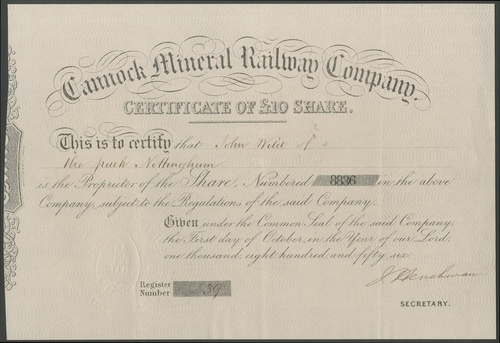 Cannock Mineral Railway Company.
CERTIFICATE OF £10 SHARE.
This is to certify that John of
the park Nottingham
is the Proprietor of the Share, Numbered 8836 in the above
Company, subject to the Regulations of the said Company.
Given under the Common Seal of the said Company,
the First day of October, in the Year of our Lord,
one thousand, eight hundred, and fifty six.
Register
Number 39
SECRETARY.